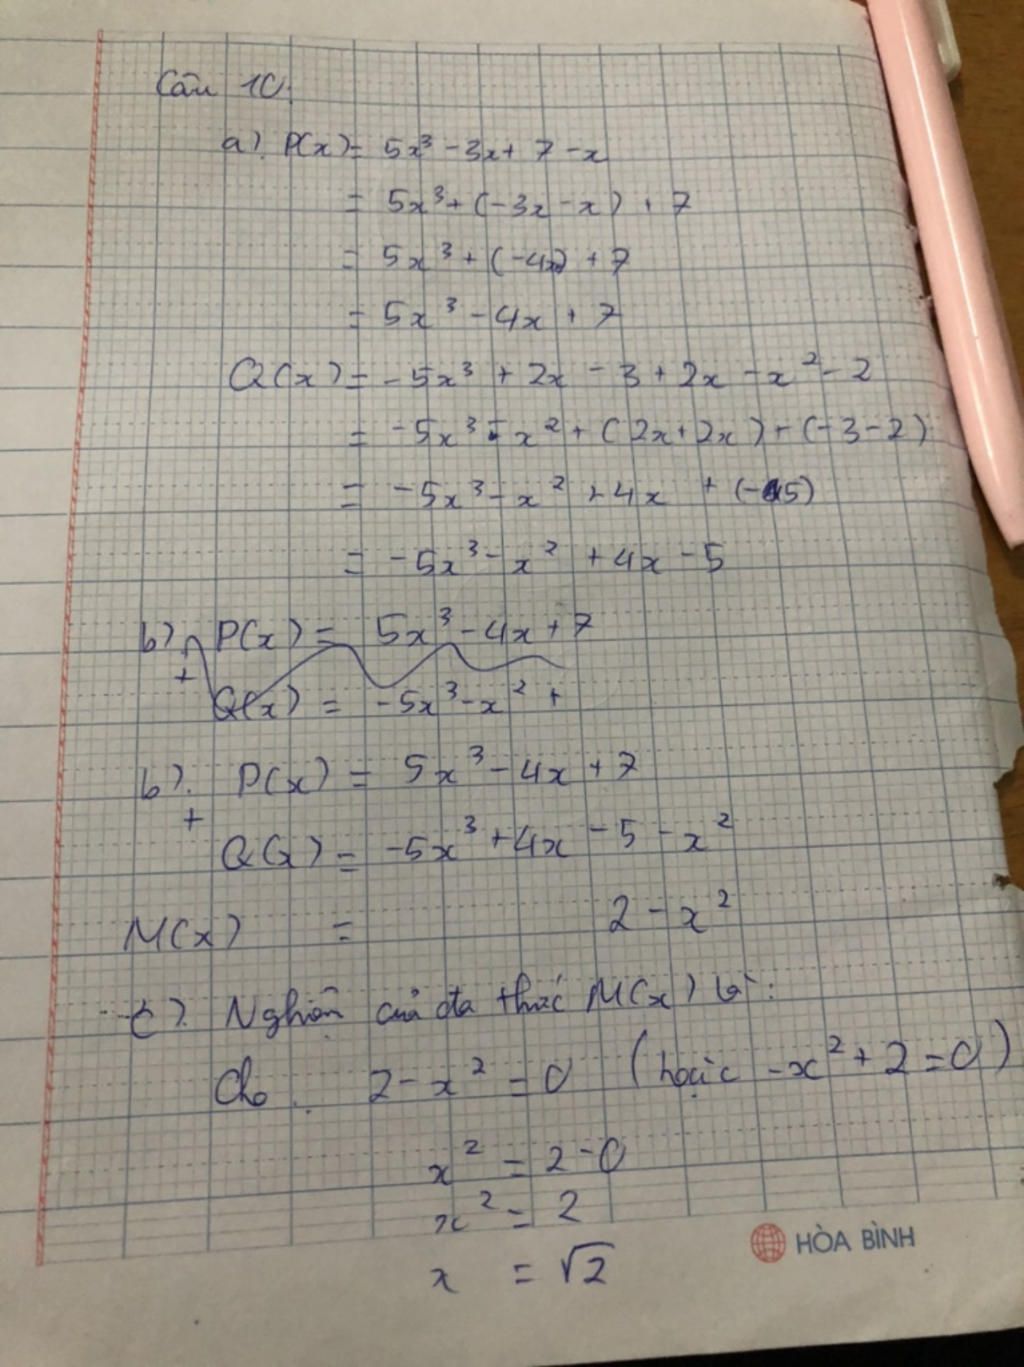 Câu 10.
a). P(x) = 5x³ - 3x + 7 - x
= 5x³ + (-3x - x) + 7
= 5x³ + (-4x) + 7
= 5x³ - 4x + 7
Q(x) = -5x³ + 2x - 3 + 2x - x² - 2
= -5x³ - x² + (2x + 2x) + (-3 - 2)
= -5x³ - x² + 4x + (-5)
= -5x³ - x² + 4x - 5
b) P(x) = 5x³ - 4x + 7
+
Q(x) = -5x³ - x² +
b). P(x) = 5x³ - 4x + 7
+
Q(x) = -5x³ + 4x - 5 - x²
M(x) = 2 - x²
c). Nghiệm của đa thức M(x) là:
Cho 2 - x² = 0 (hoặc -x² + 2 = 0)
x² = 2 - 0
x² = 2
x = √2
HÒA BÌNH